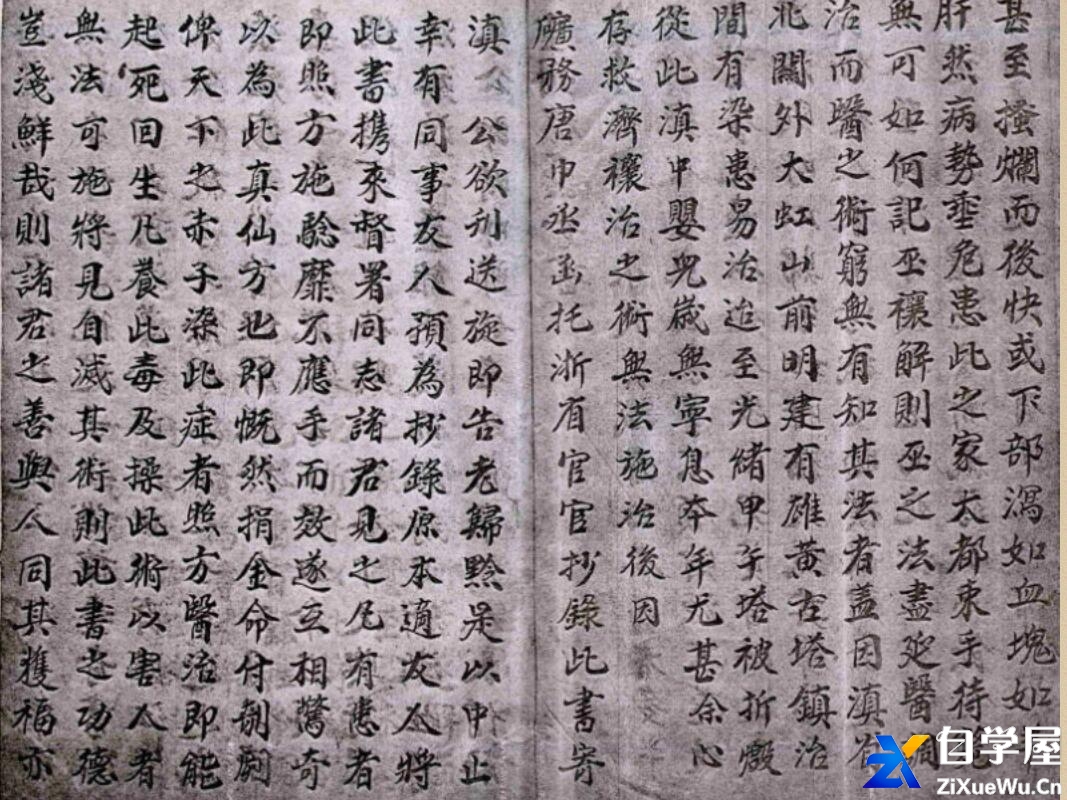 甚至搔爛而後快或下部瀉如血塊如
肝然病勢垂危患此之家大都束手待
無可如何記巫禳解則巫之法盡延醫調
治而醫之術窮無有知其法者蓋因滇省
北關外大虹山前明建有雄黃古塔鎮治
間有染患易治迨至光緒甲午塔被折燬
從此滇中嬰兒歲無寧息本年尤甚余心
存救濟禳治之術無法施治後因
礦務唐中丞函托浙省官官抄錄此書寄
滇 公欲刋送旋即告老歸黔是以中止
幸有同事友人預為抄錄原本適友人將
此書攜來督署同志諸君見之凡有患者
即照方施驗靡不應手而效遂互相驚奇
以為此真仙方也即慨然捐金命付剞劂
俾天下之赤子染此症者照方醫治即能
起死回生凡養此毒及操此術以害人者
無法可施將見自滅其術則此書之功德
豈淺鮮哉則諸君之善與人同其獲福亦
自学屋
ZiXueWu.Cn